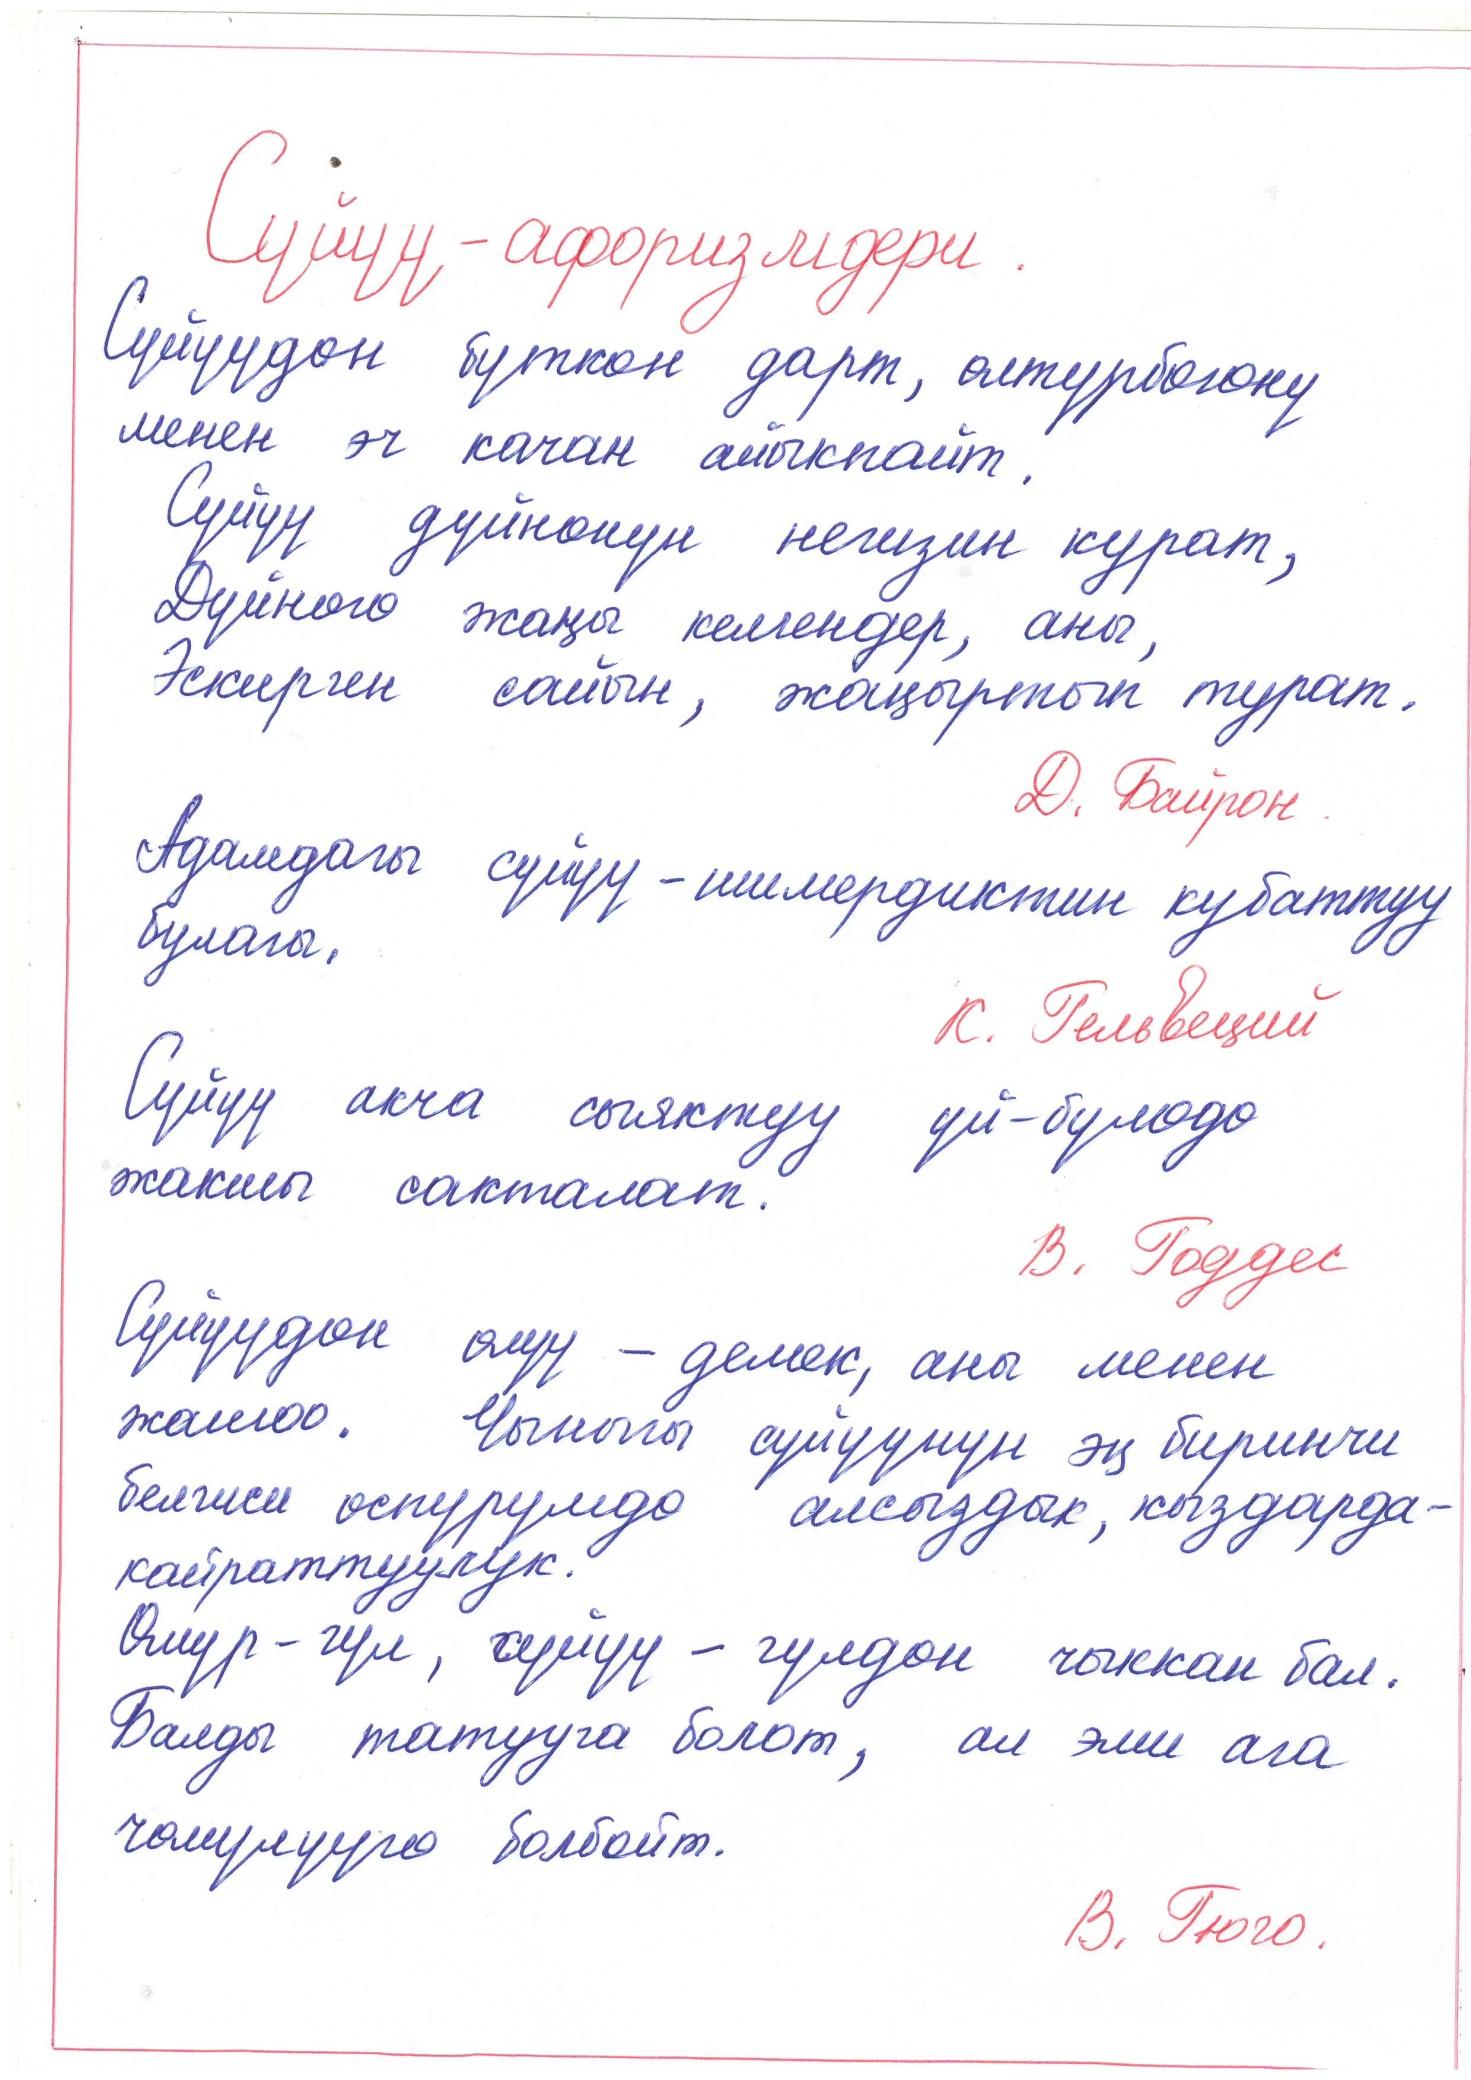 Сүйүү - афоризмдери.
Сүйүүдөн бүткөн дарт, өлтүрбөгөнү
менен эч качан айыкпайт.
Сүйүү дүйнөнүн негизин курат,
Дүйнөгө жаңы келгендер, аны,
Эскирген сайын, жаңыртып турат.
Д. Байрон.
Адамдагы сүйүү - ишмердиктин кубаттуу
булагы.
К. Гельвеций
Сүйүү акча сыяктуу үй-бүлөдө
жакшы сакталат.
В. Годдес
Сүйүүдөн өлүү - демек, аны менен
жашоо. Чыныгы сүйүүнүн эң биринчи
белгиси өспүрүмдө алсыздык, кыздарда-
кайраттуулук.
Өмүр-гүл, сүйүү - гүлдөн чыккан бал.
Балды татууга болот, ал эми ага
чөмүлүүгө болбойт.
В. Гюго.